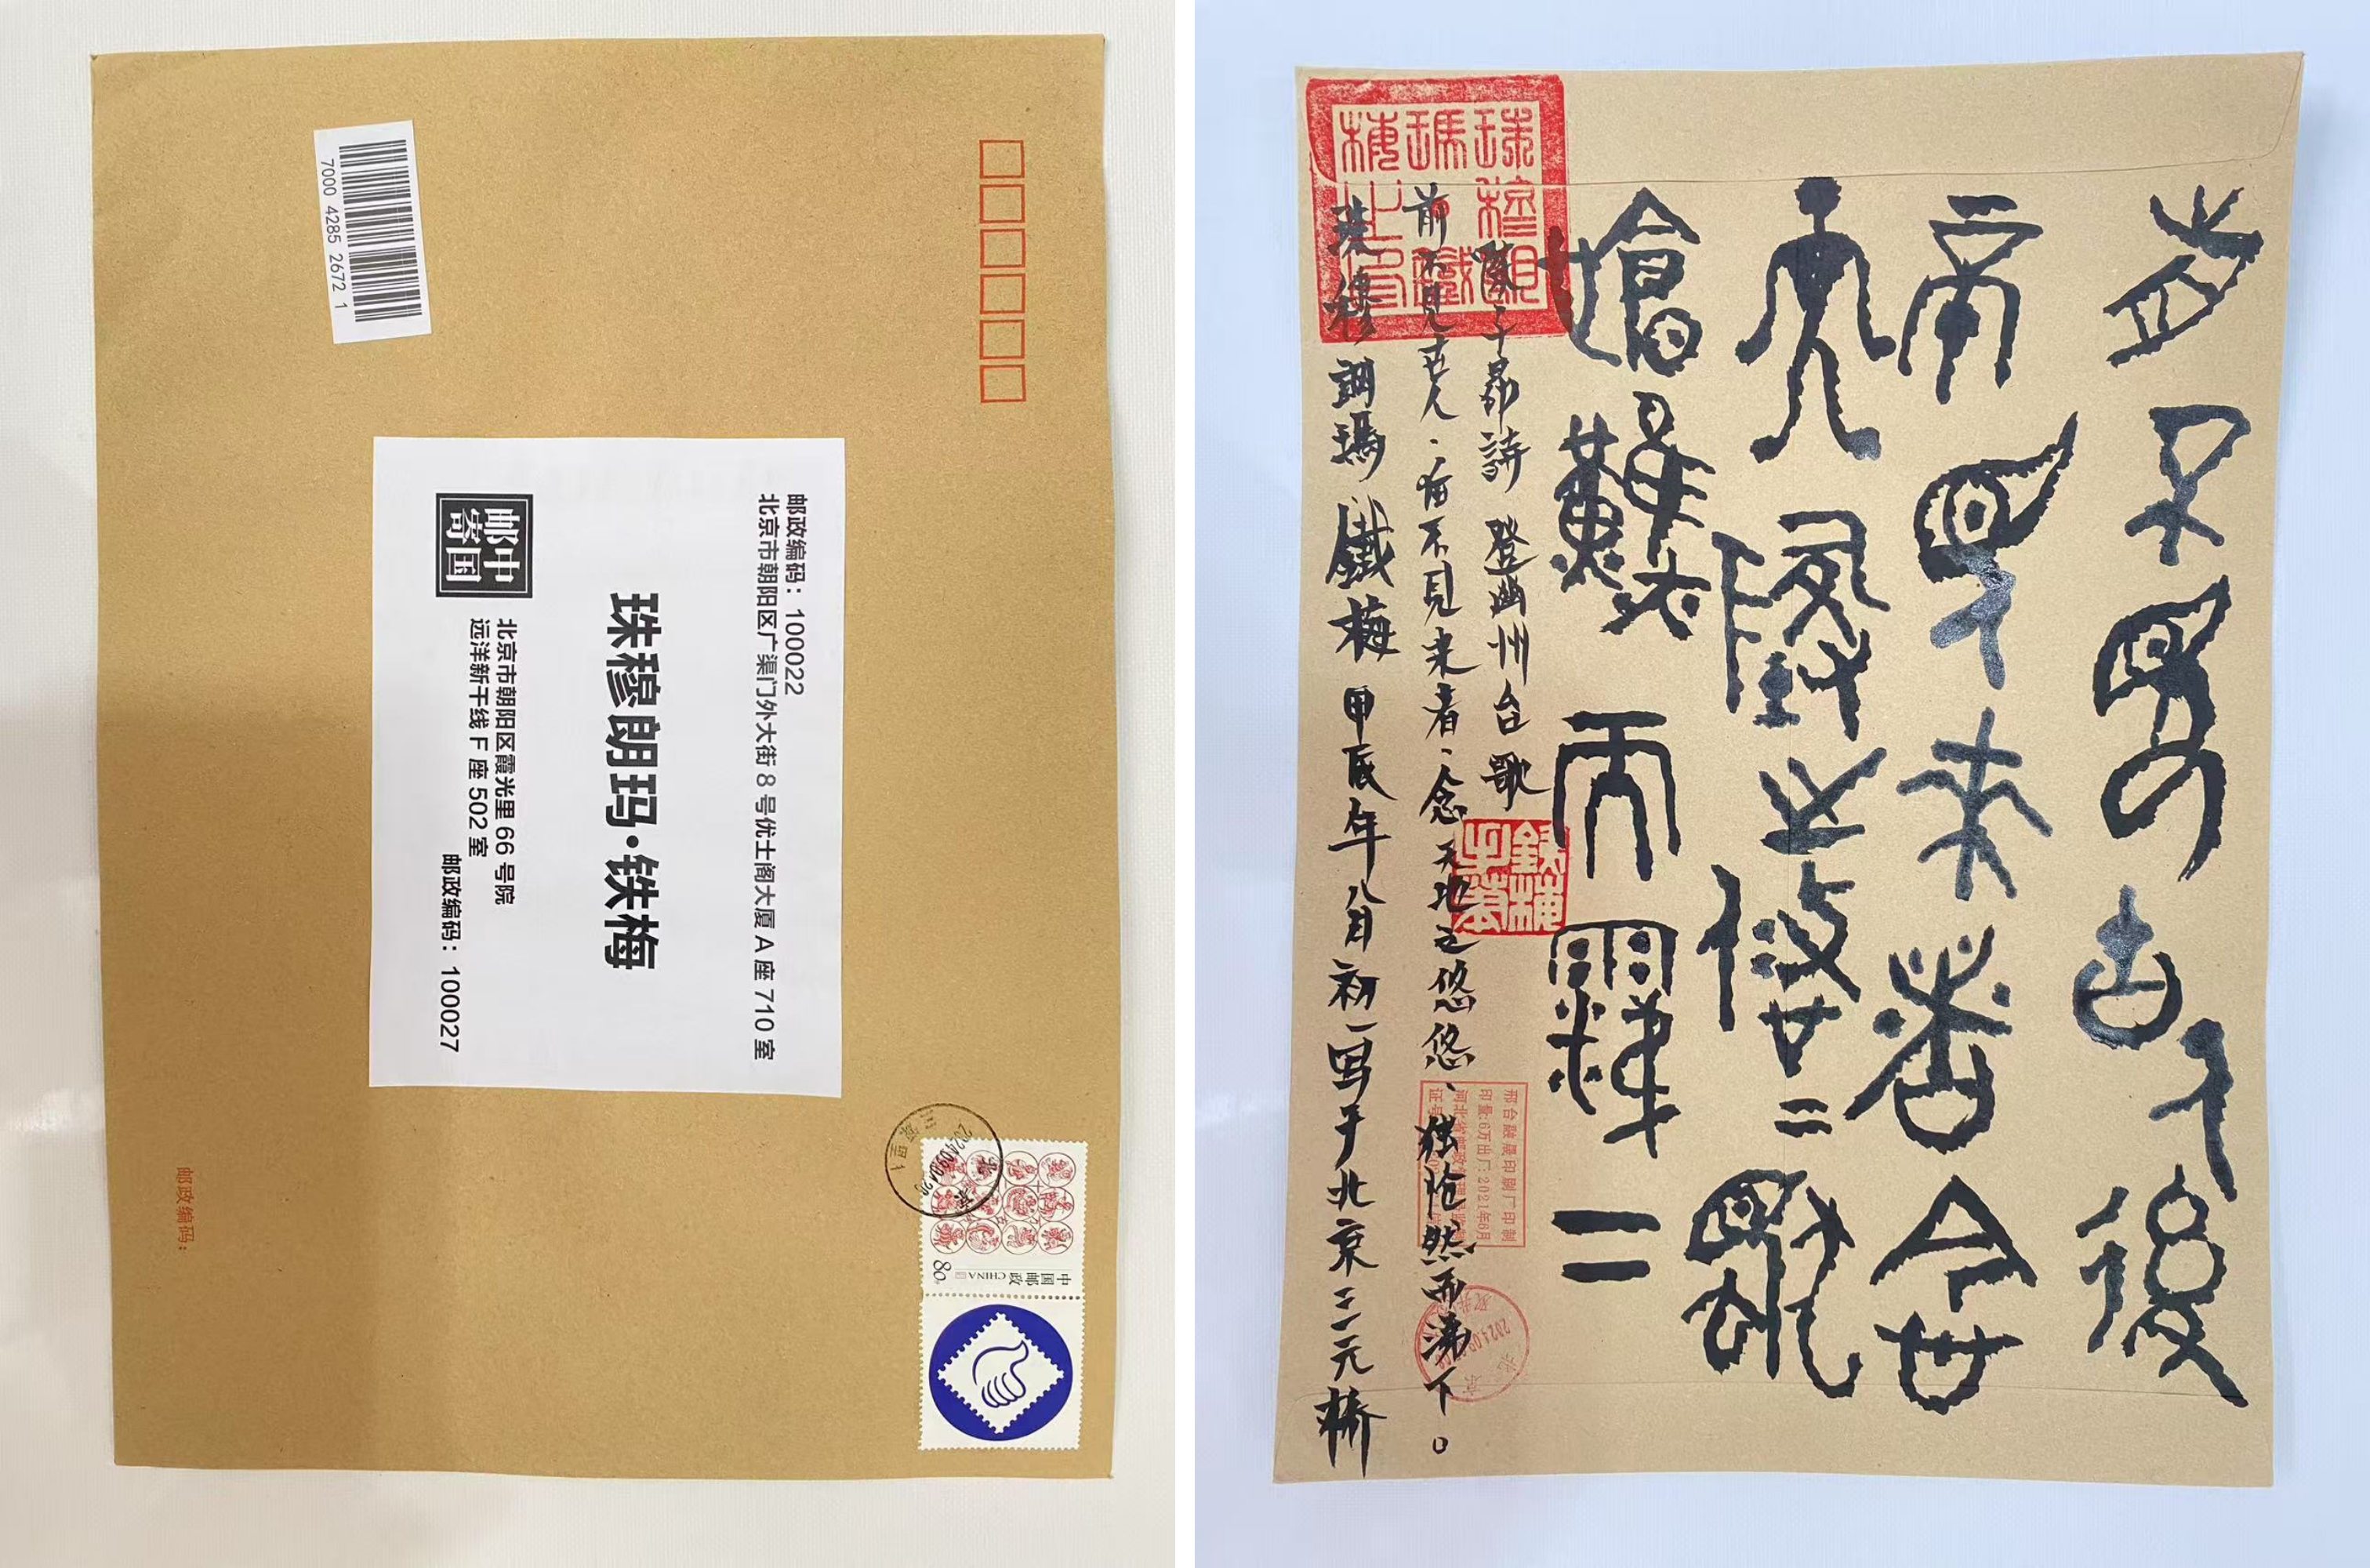 7000 4285 2672 1
邮政编码：100022
北京市朝阳区广渠门外大街 8 号优士阁大厦 A 座 710 室
珠穆朗玛·铁梅
中国
邮寄
北京市朝阳区霞光里 66 号院
远洋新干线 F 座 502 室
邮政编码：100027
中国邮政 CHINA
80分
北京
邮政编码：
前不見古人後
不見來者念
天地之悠二獨
愴然而涕下
陳子昂詩 登幽州台歌
前不見古人、后不見来者、念天地之悠悠、独怆然而涕下。
珠穆朗瑪鐵梅甲辰年八月初一写于北京三元桥
珠穆朗瑪鐵梅之印
印制
印量:6万 出厂:2021年6月
河北省邮政
证号
北京